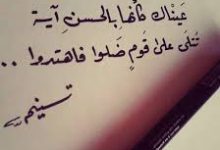 عَيناك كأنها بالحسنِ آية
تُتلى على قومٍ ضَلوا فاهتدوا ..
تسنيم